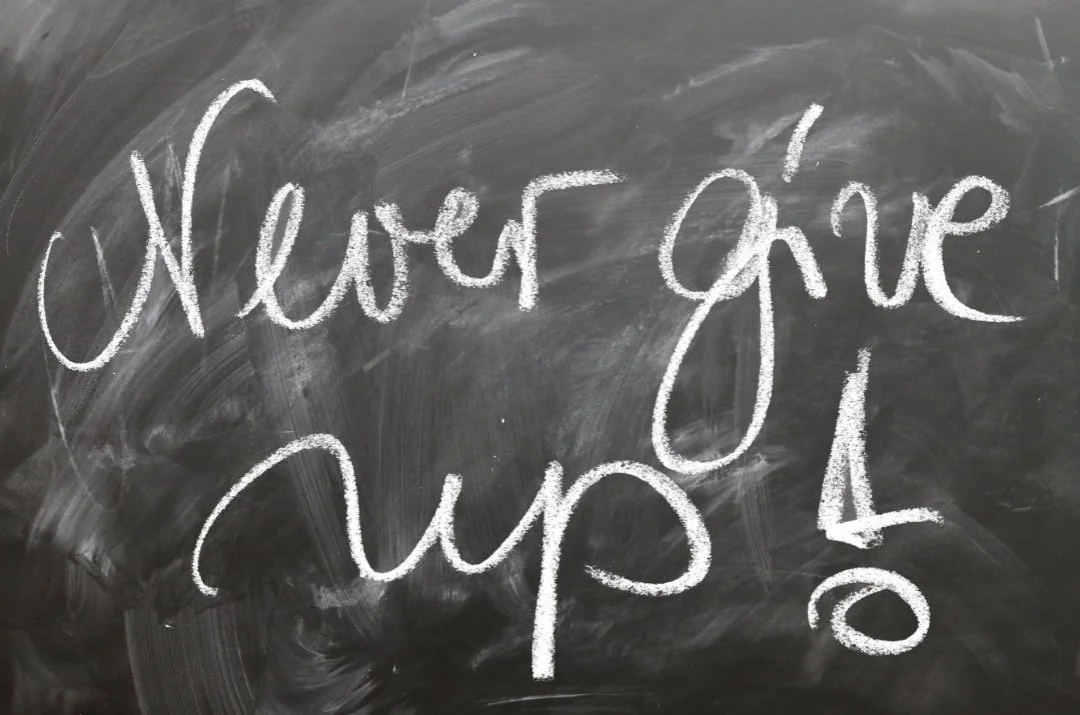 Never give
up!